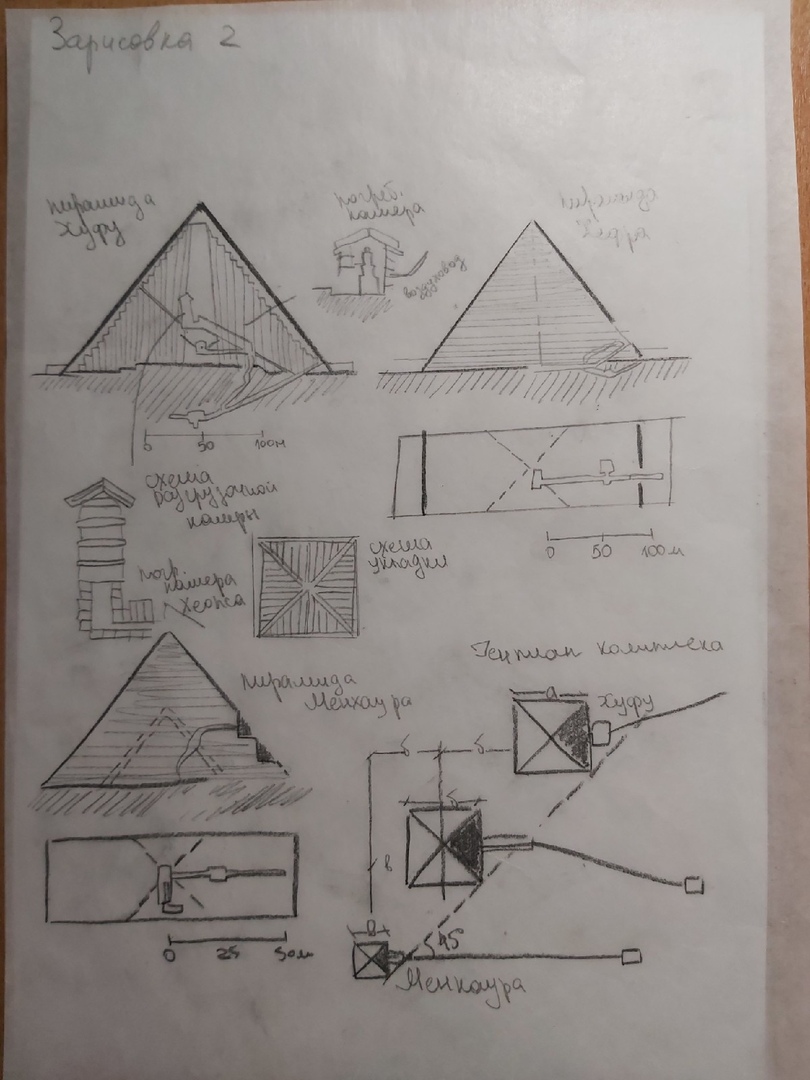 Зарисовка 2
пирамида
Хуфу
погреб.
камера
воздуховод
0 50 100м
схема
разгрузочной
камеры
погр.
камера
Хеопса
схема
укладки
0 50 100м
пирамида
Менхаура
Генплан комплекса
а
Хуфу
б б
б
в
45
Менкаура
0 25 50м